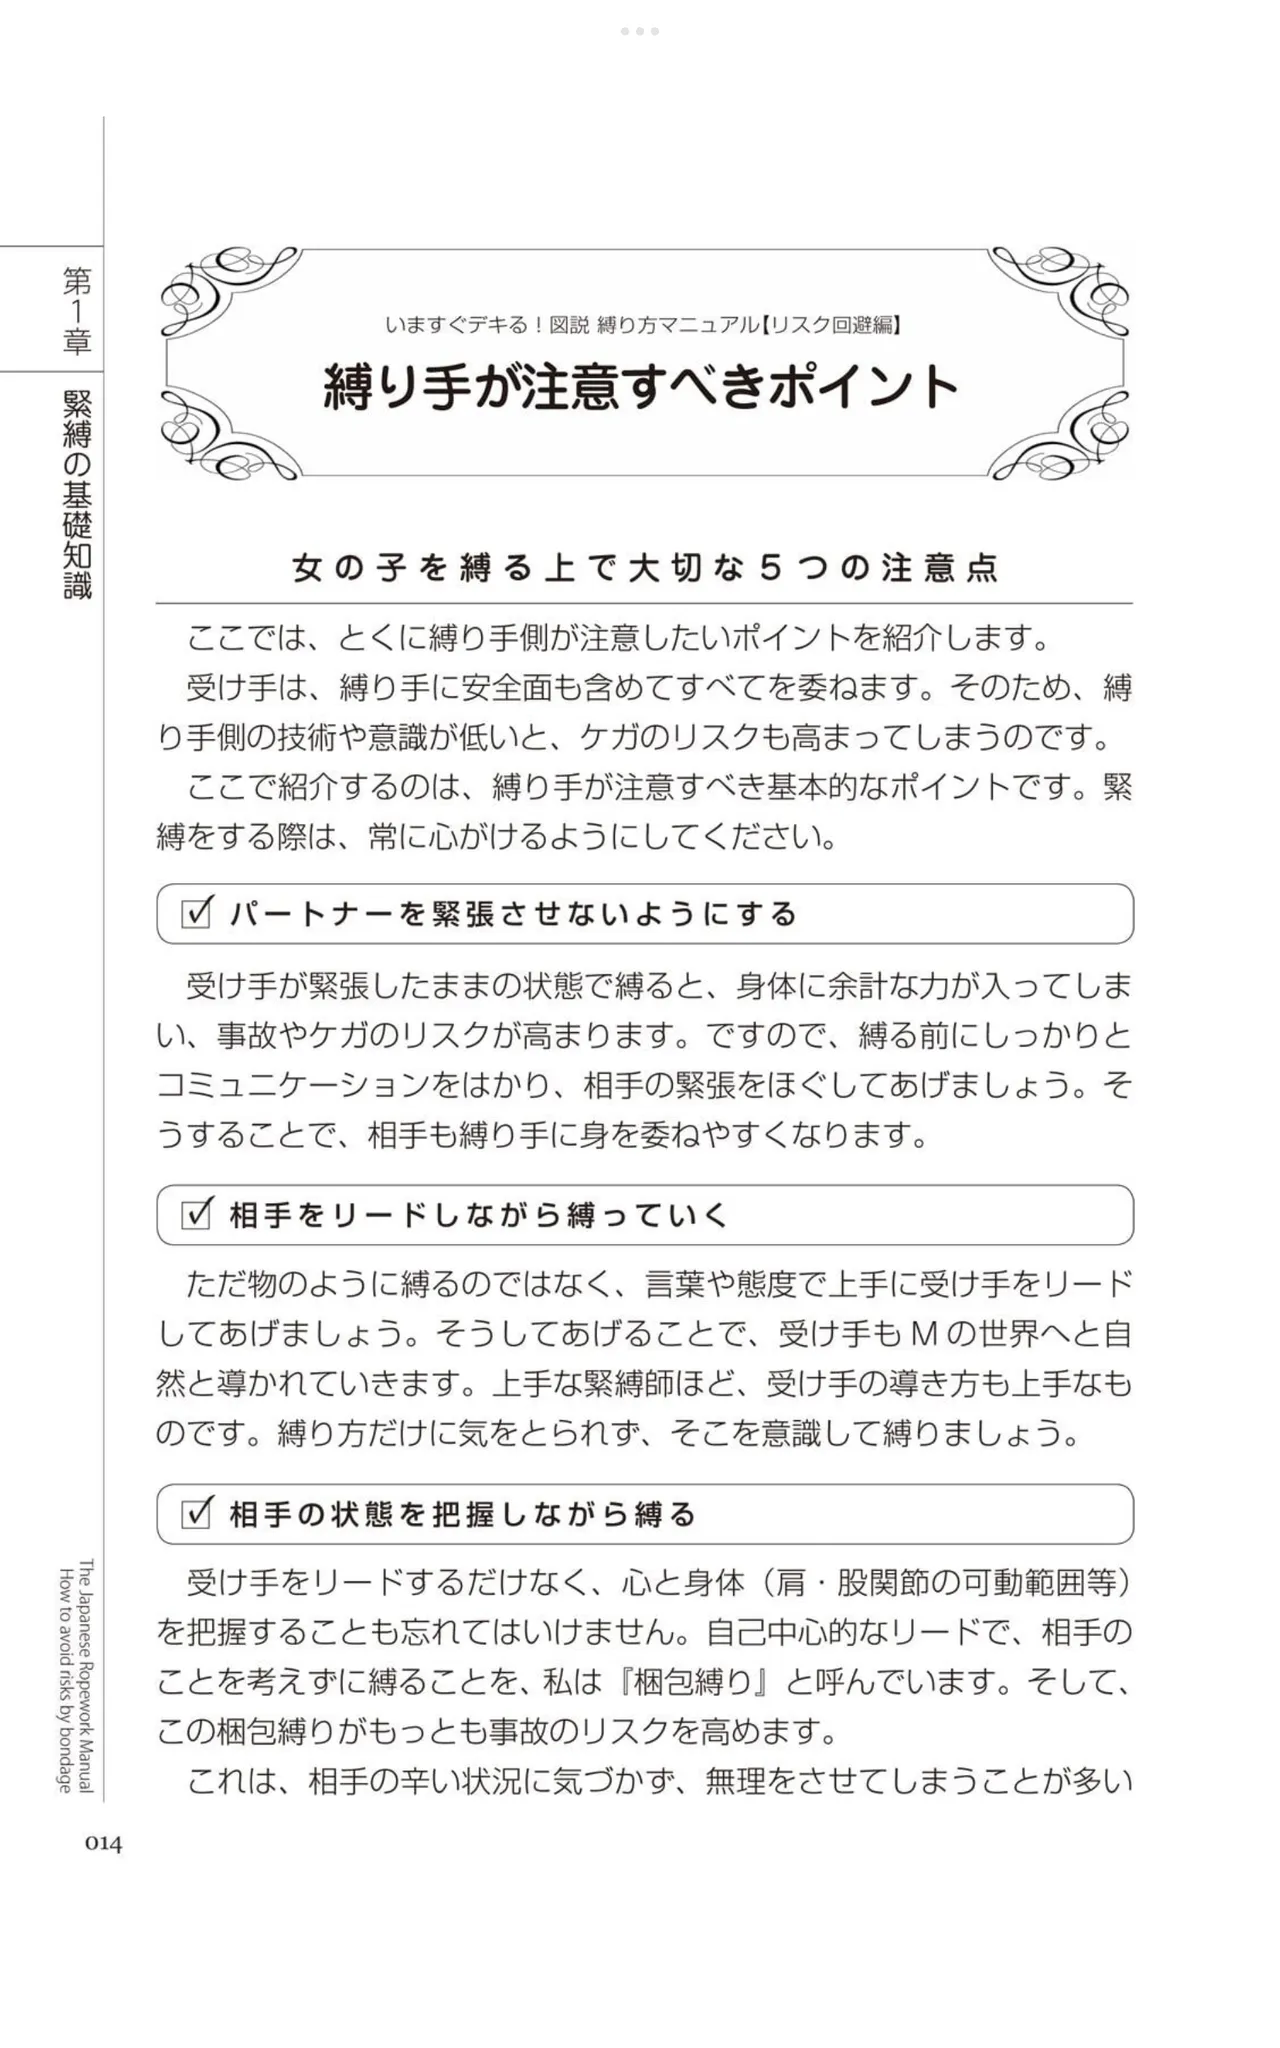 第1章
緊縛の基礎知識
いますぐデキる！図説 縛り方マニュアル【リスク回避編】
縛り手が注意すべきポイント
女の子を縛る上で大切な５つの注意点
ここでは、とくに縛り手側が注意したいポイントを紹介します。
受け手は、縛り手に安全面も含めてすべてを委ねます。そのため、縛
り手側の技術や意識が低いと、ケガのリスクも高まってしまうのです。
ここで紹介するのは、縛り手が注意すべき基本的なポイントです。緊
縛をする際は、常に心がけるようにしてください。
パートナーを緊張させないようにする
受け手が緊張したままの状態で縛ると、身体に余計な力が入ってしま
い、事故やケガのリスクが高まります。ですので、縛る前にしっかりと
コミュニケーションをはかり、相手の緊張をほぐしてあげましょう。そ
うすることで、相手も縛り手に身を委ねやすくなります。
相手をリードしながら縛っていく
ただ物のように縛るのではなく、言葉や態度で上手に受け手をリード
してあげましょう。そうしてあげることで、受け手も M の世界へと自
然と導かれていきます。上手な緊縛師ほど、受け手の導き方も上手なも
のです。縛り方だけに気をとられず、そこを意識して縛りましょう。
相手の状態を把握しながら縛る
受け手をリードするだけなく、心と身体（肩・股関節の可動範囲等）
を把握することも忘れてはいけません。自己中心的なリードで、相手の
ことを考えずに縛ることを、私は『梱包縛り』と呼んでいます。そして、
この梱包縛りがもっとも事故のリスクを高めます。
これは、相手の辛い状況に気づかず、無理をさせてしまうことが多い
The Japanese Ropework Manual
How to avoid risks by bondage
014